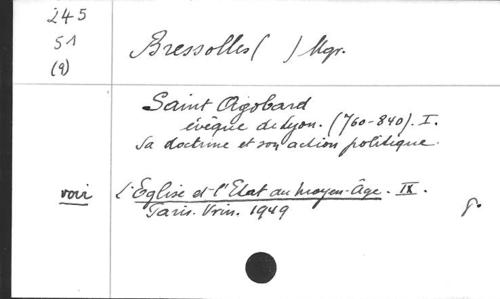 245
51
(9)
Bressolles ( ) Mgr.
Saint Agobard
évêque de Lyon. (760-840). I.
Sa doctrine et son action politique.
voir L'Église et l'Etat au moyen-Âge. IX.
Paris. Vrin. 1949
g.